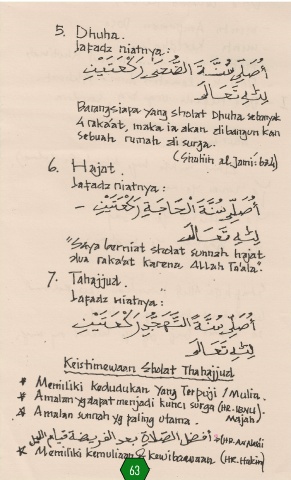 5. Dhuha.
Lafadz niatnya:
أُصَلِّي سُنَّةَ الضُّحَى رَكْعَتَيْنِ
لِلّٰهِ تَعَالَى
Barangsiapa yang sholat Dhuha sebanyak
4 raka'at, maka ia akan dibangunkan
sebuah rumah di surga.
(Shahih al Jami:
6. Hajat.
Lafadz niatnya:
أُصَلِّي سُنَّةَ الْحَاجَةِ رَكْعَتَيْنِ -
لِلّٰهِ تَعَالَى
"Saya berniat sholat sunnah hajat
dua raka'at karena Allah Ta'ala".
7. Tahajjud.
Lafadz niatnya:
أُصَلِّي سُنَّةَ التَّهَجُّدِ رَكْعَتَيْنِ
لِلّٰهِ تَعَالَى
Keistimewaan Sholat Thahajjud
* Memiliki kedudukan Yang Terpuji / Mulia.
* Amalan yg dapat menjadi kunci surga (HR. Ibnu
Majah)
* Amalan sunnah yg paling utama.
أفضل الصلاة بعد الفريضة قيام الليل (HR.
* Memiliki kemuliaan & kewibawaan (HR. Hakim)
63